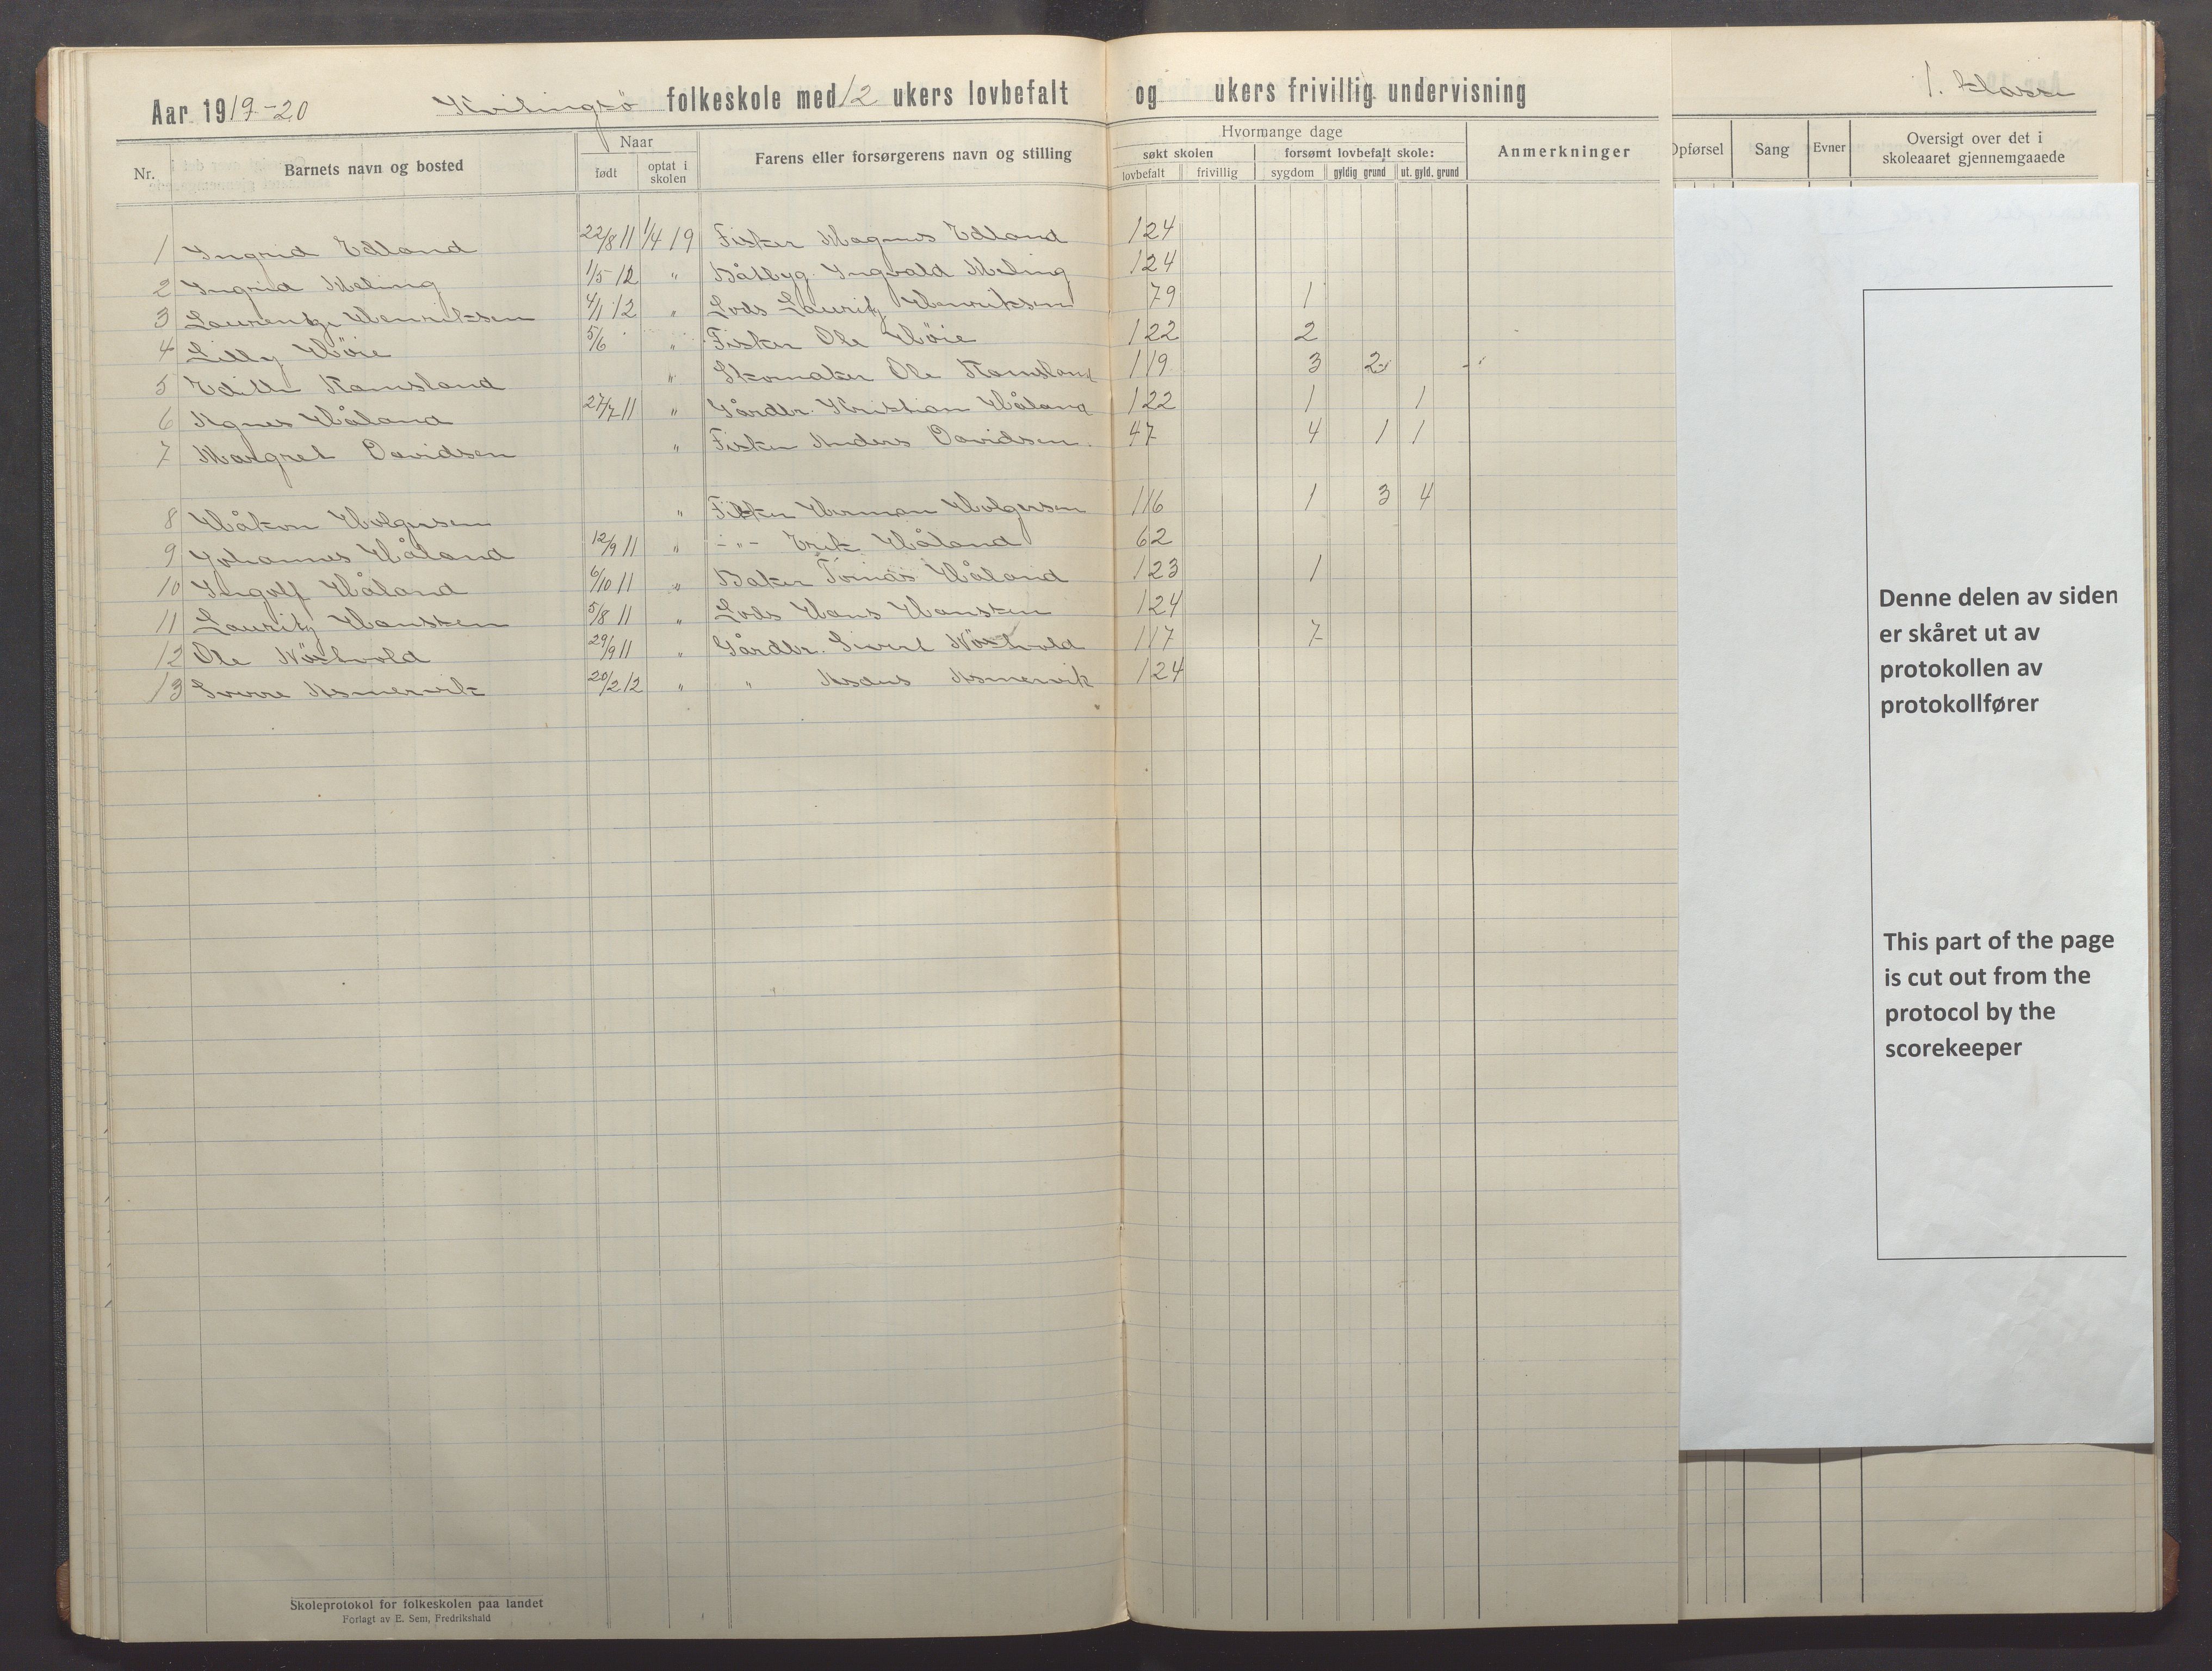 Aar 1919-20 Kvitingsö folkeskole med 12 ukers lovbefalt og ukers frivillig undervisning 1. klasse
Nr. Barnets navn og bosted Naar født optat i skolen Farens eller forsørgerens navn og stilling Hvormange dage søkt skolen lovbefalt frivillig forsømt lovbefalt skole: sygdom gyldig grund ut. gyld. grund Anmerkninger Opførsel Sang Evner Oversigt over det i skoleaaret gjennemgaaede
1 Ingrid Edland 22/8 11 1/4 19 Fisker Magnus Edland 124
2 Ingrid Meling 1/5 12 " Båtbyg. Ingvald Meling 124
3 Laurentze Henriksen 4/1 12 " Lods Lauritz Henriksen 79 1
4 Lilly Höie 5/6 " Fisker Ole Höie 122 2
5 Edith Ramsland " Skomaker Ole Ramsland 119 3 2
6 Agnes Håland 27/7 11 " Gårdbr. Kristian Håland 122 1 1
7 Margret Davidsen " Fisker Anders Davidsen. 47 4 1 1
8 Håkon Holgersen " Fisker Herman Holgersen 116 1 3 4
9 Johannes Håland 12/9 11 " -"- Erik Håland 62
10 Ingolf Håland 6/10 11 " Baker Tomas Håland 123 1
11 Lauritz Hansken 5/8 11 " Lods Hans Hansken 124
12 Ole Nöstvold 29/9 11 " Gårdbr. Sivert Nöstvold 117 7
13 Sverre Asmervik 20/2 12 " " Asmervik 124
Denne delen av siden
er skåret ut av
protokollen av
protokollfører
This part of the page
is cut out from the
protocol by the
scorekeeper
Skoleprotokol for folkeskolen paa landet
Forlagt av E. Sem, Fredrikshald